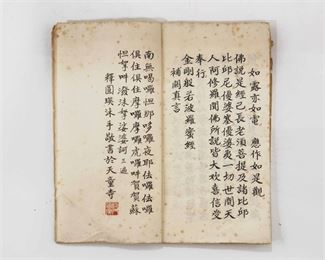 如露亦如電　應作如是觀
佛說是經已長老須菩提及諸比丘
比邱尼優婆塞優婆夷一切世間天
人阿修羅聞佛所說皆大歡喜信受
奉行
金剛般若波羅蜜經
補闕真言
南無喝囉怛那哆囉夜耶佉囉佉囉
俱住俱住摩囉摩囉虎囉吽賀賀蘇
怛拏吽潑沫拏娑婆訶 三遍
釋圓瑛沐手敬書於天童寺